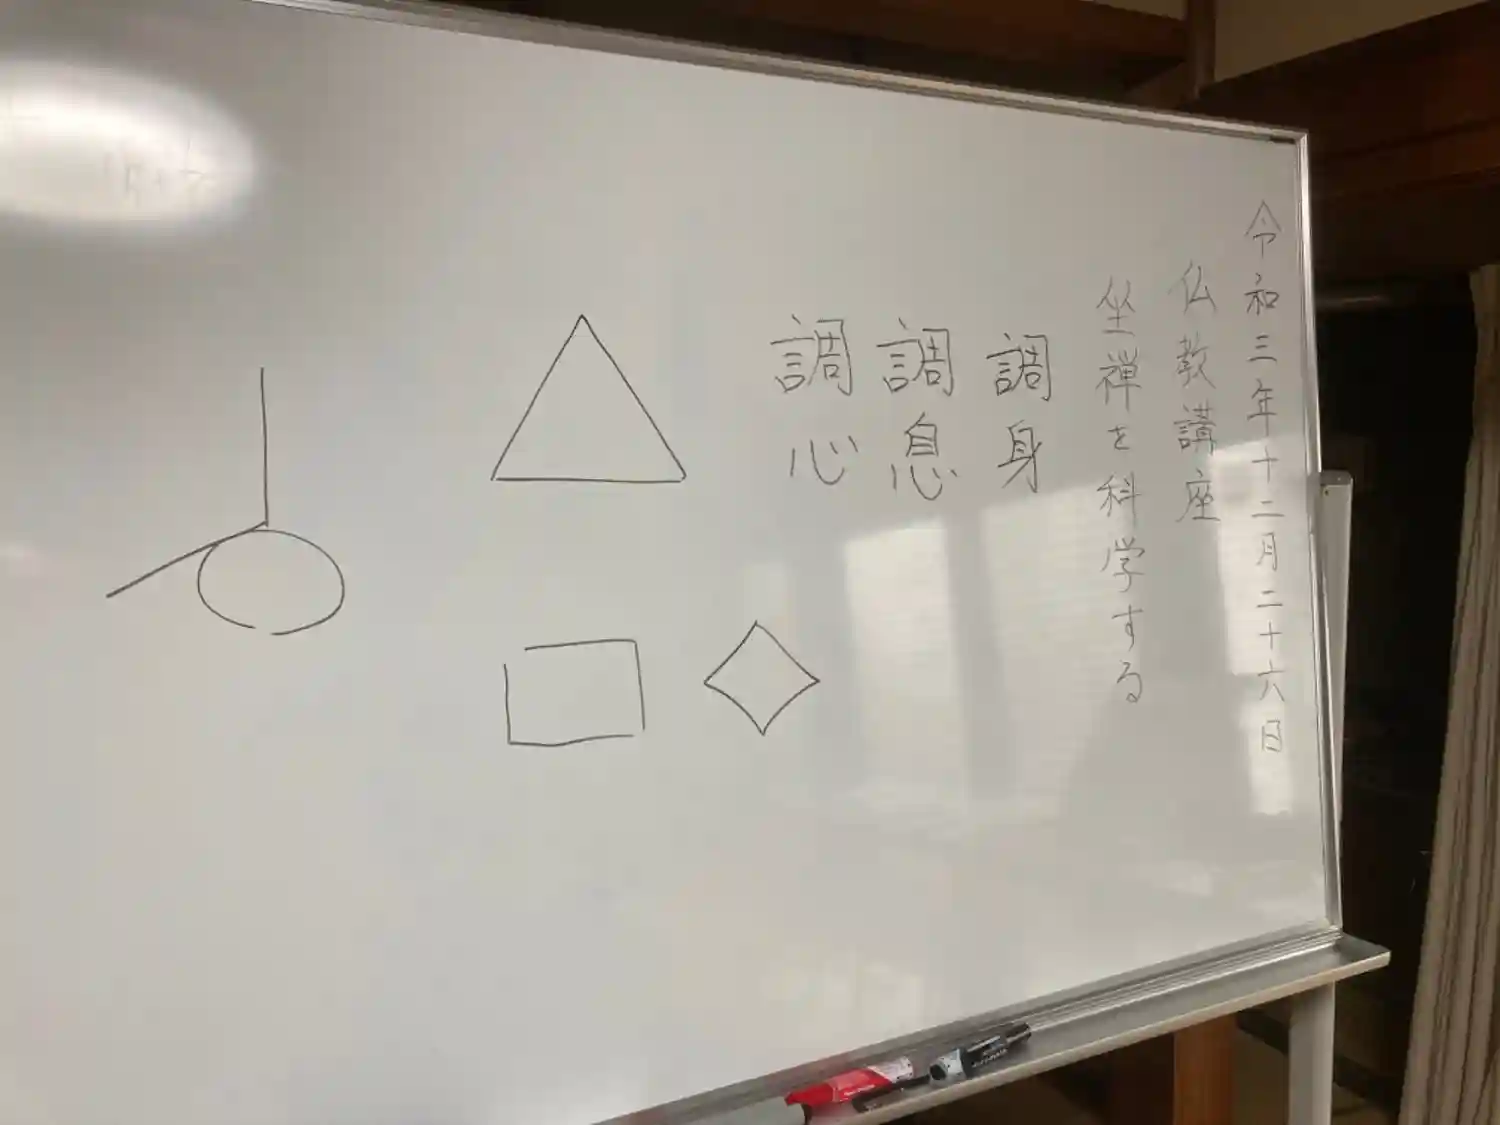 令和三年十二月二十六日
仏教講座
坐禅を科学する
調身
調息
調心